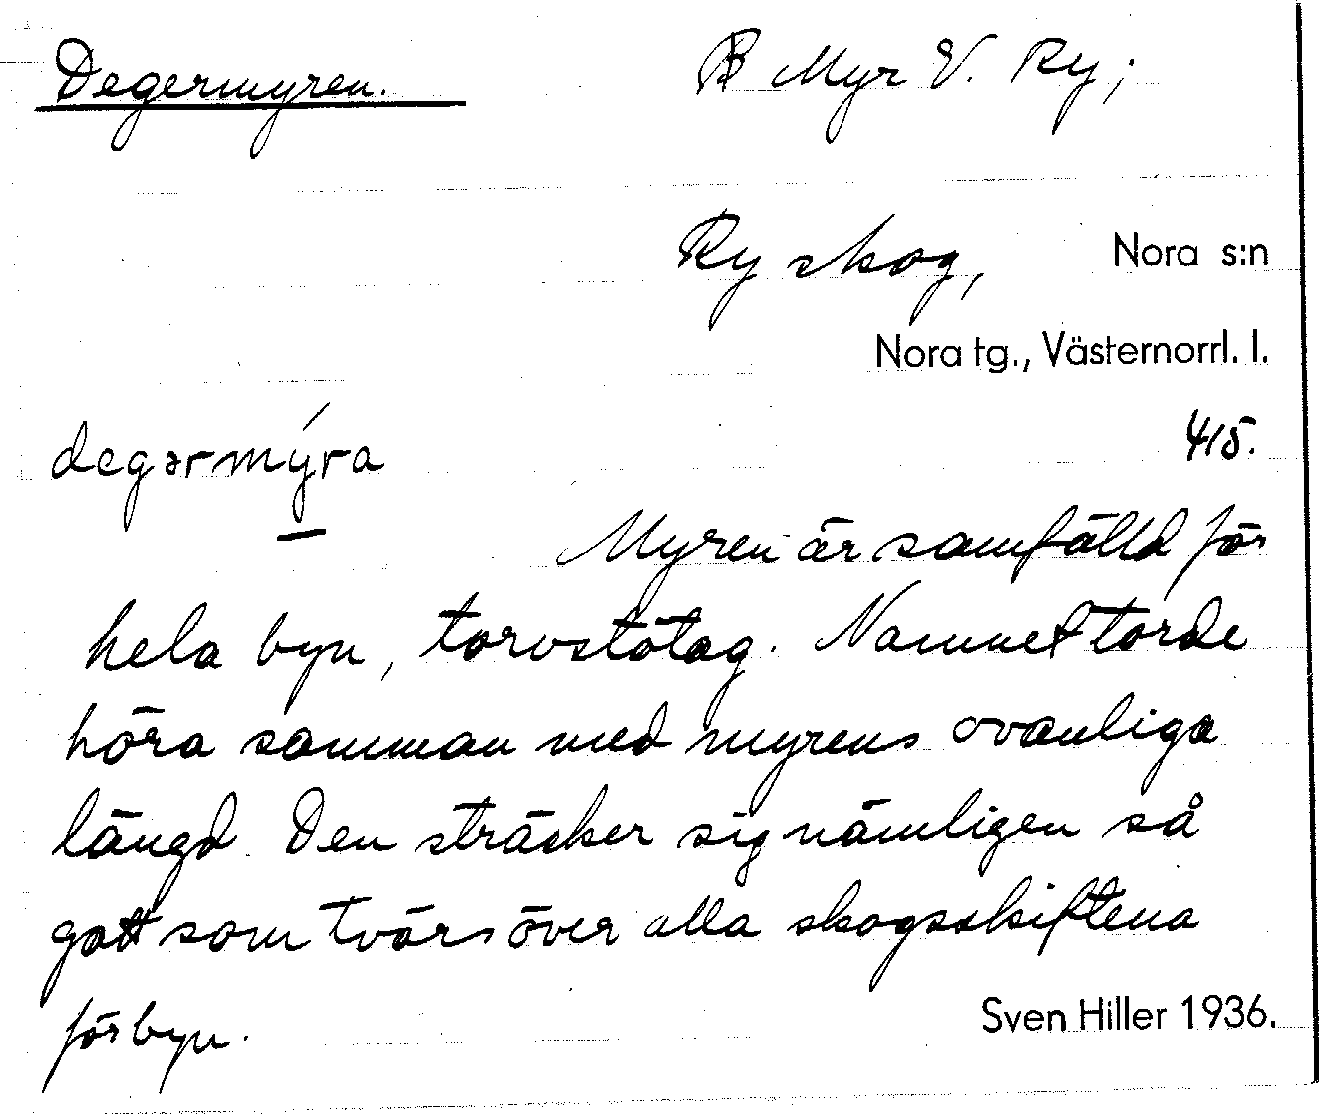 Degermyren.
B Myr V. Ry;
Ry skog, Nora s:n
Nora tg., Västernorrl. l.
degərmýra
415.
Myren är samfälld för
hela byn, torvströtag. Namnet torde
höra samman med myrens ovanliga
längd. Den sträcker sig nämligen så
gott som tvärs över alla skogsskiftena
för byn.
Sven Hiller 1936.